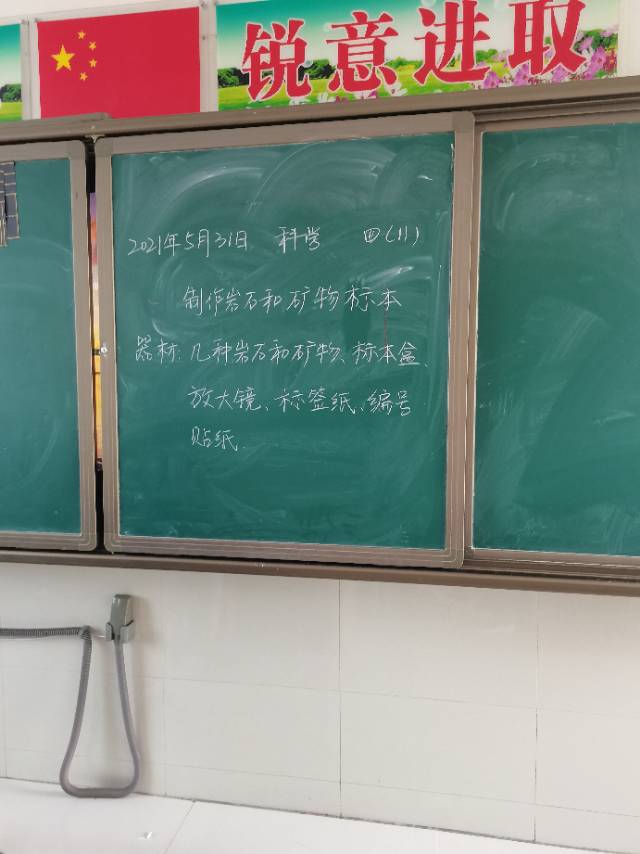 锐意进取
2021年5月31日 科学 四(11)
制作岩石和矿物标本
器材:几种岩石和矿物、标本盒、
放大镜、标签纸、编号
贴纸.